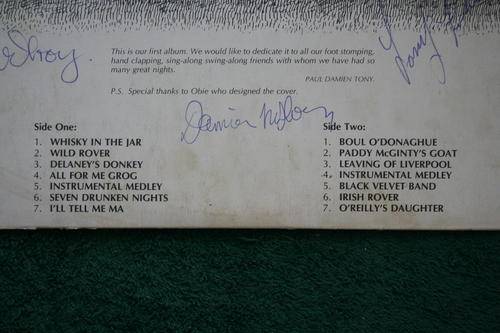 This is our first album. We would like to dedicate it to all our foot stomping,
hand clapping, sing-along swing-along friends with whom we have had so
many great nights.
PAUL DAMIEN TONY.
P.S. Special thanks to Obie who designed the cover.
Tony
Damien
Side One:
1. WHISKY IN THE JAR
2. WILD ROVER
3. DELANEY'S DONKEY
4. ALL FOR ME GROG
5. INSTRUMENTAL MEDLEY
6. SEVEN DRUNKEN NIGHTS
7. I'LL TELL ME MA
Side Two:
1. BOUL O'DONAGHUE
2. PADDY McGINTY'S GOAT
3. LEAVING OF LIVERPOOL
4. INSTRUMENTAL MEDLEY
5. BLACK VELVET BAND
6. IRISH ROVER
7. O'REILLY'S DAUGHTER